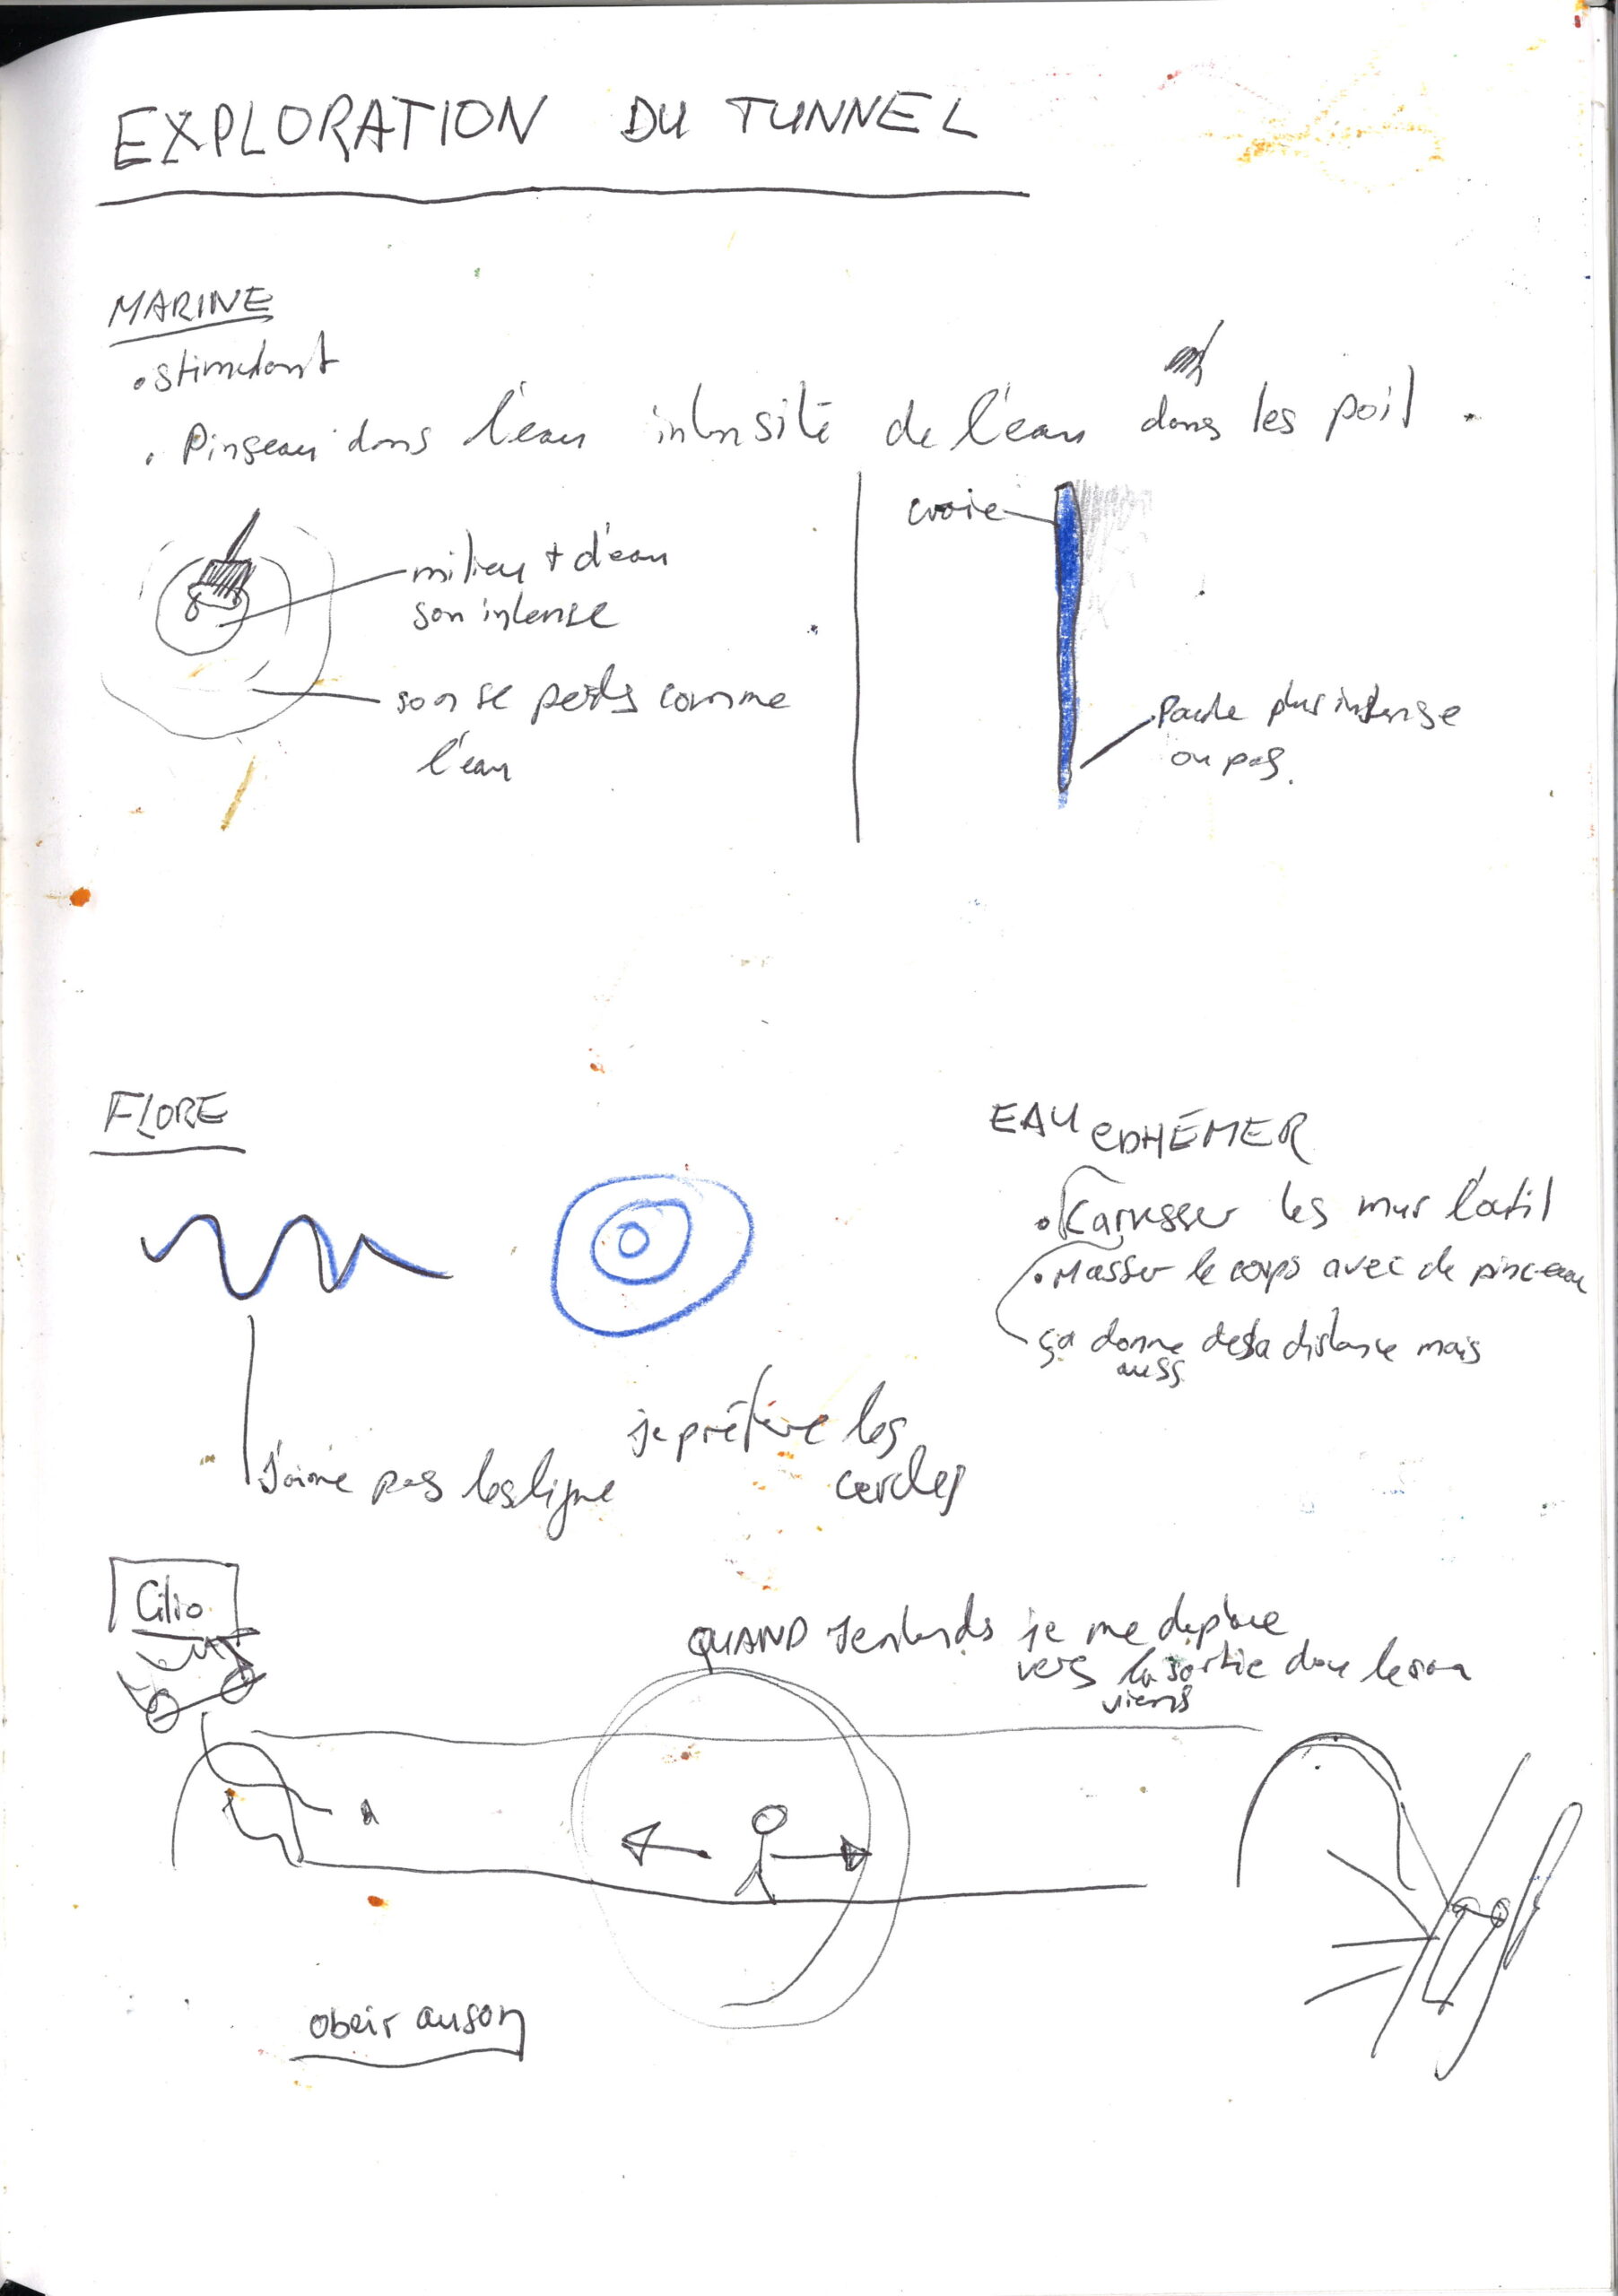 EXPLORATION DU TUNNEL
MARINE
• stimulant
• Pinseau dans l'eau intensité de l'eau dans les poil.
milieu + d'eau
son intense
son se perds comme
l'eau
craie
plus intense
ou pas.
FLORE
J'aime pas les ligne
je préfère les
cercles
EAU
• les mur l'outil
• Masser le corps avec de pinceau
ça donne de la distance mais
auss
Cilio
QUAND J'entends je me deplace
vers la sortie dou le son
viens
obeir au son